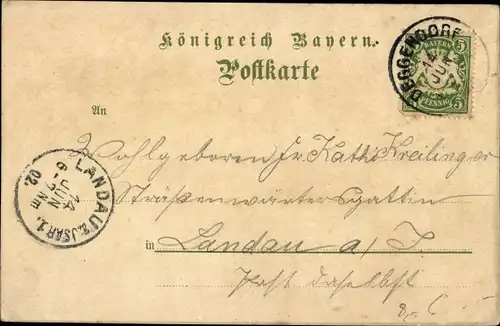 Königreich Bayern.
Postkarte
DEGGENDORF
14
JUN
BAYERN
5 5
PFENNIG
An
Wohlgeboren Fr. Kathi Kreilinger
Straßenwärtersgattin
in Landau a/I.
Post daselbst
LANDAU a. ISAR 1.
14
JUN
6-7 Nm
02.